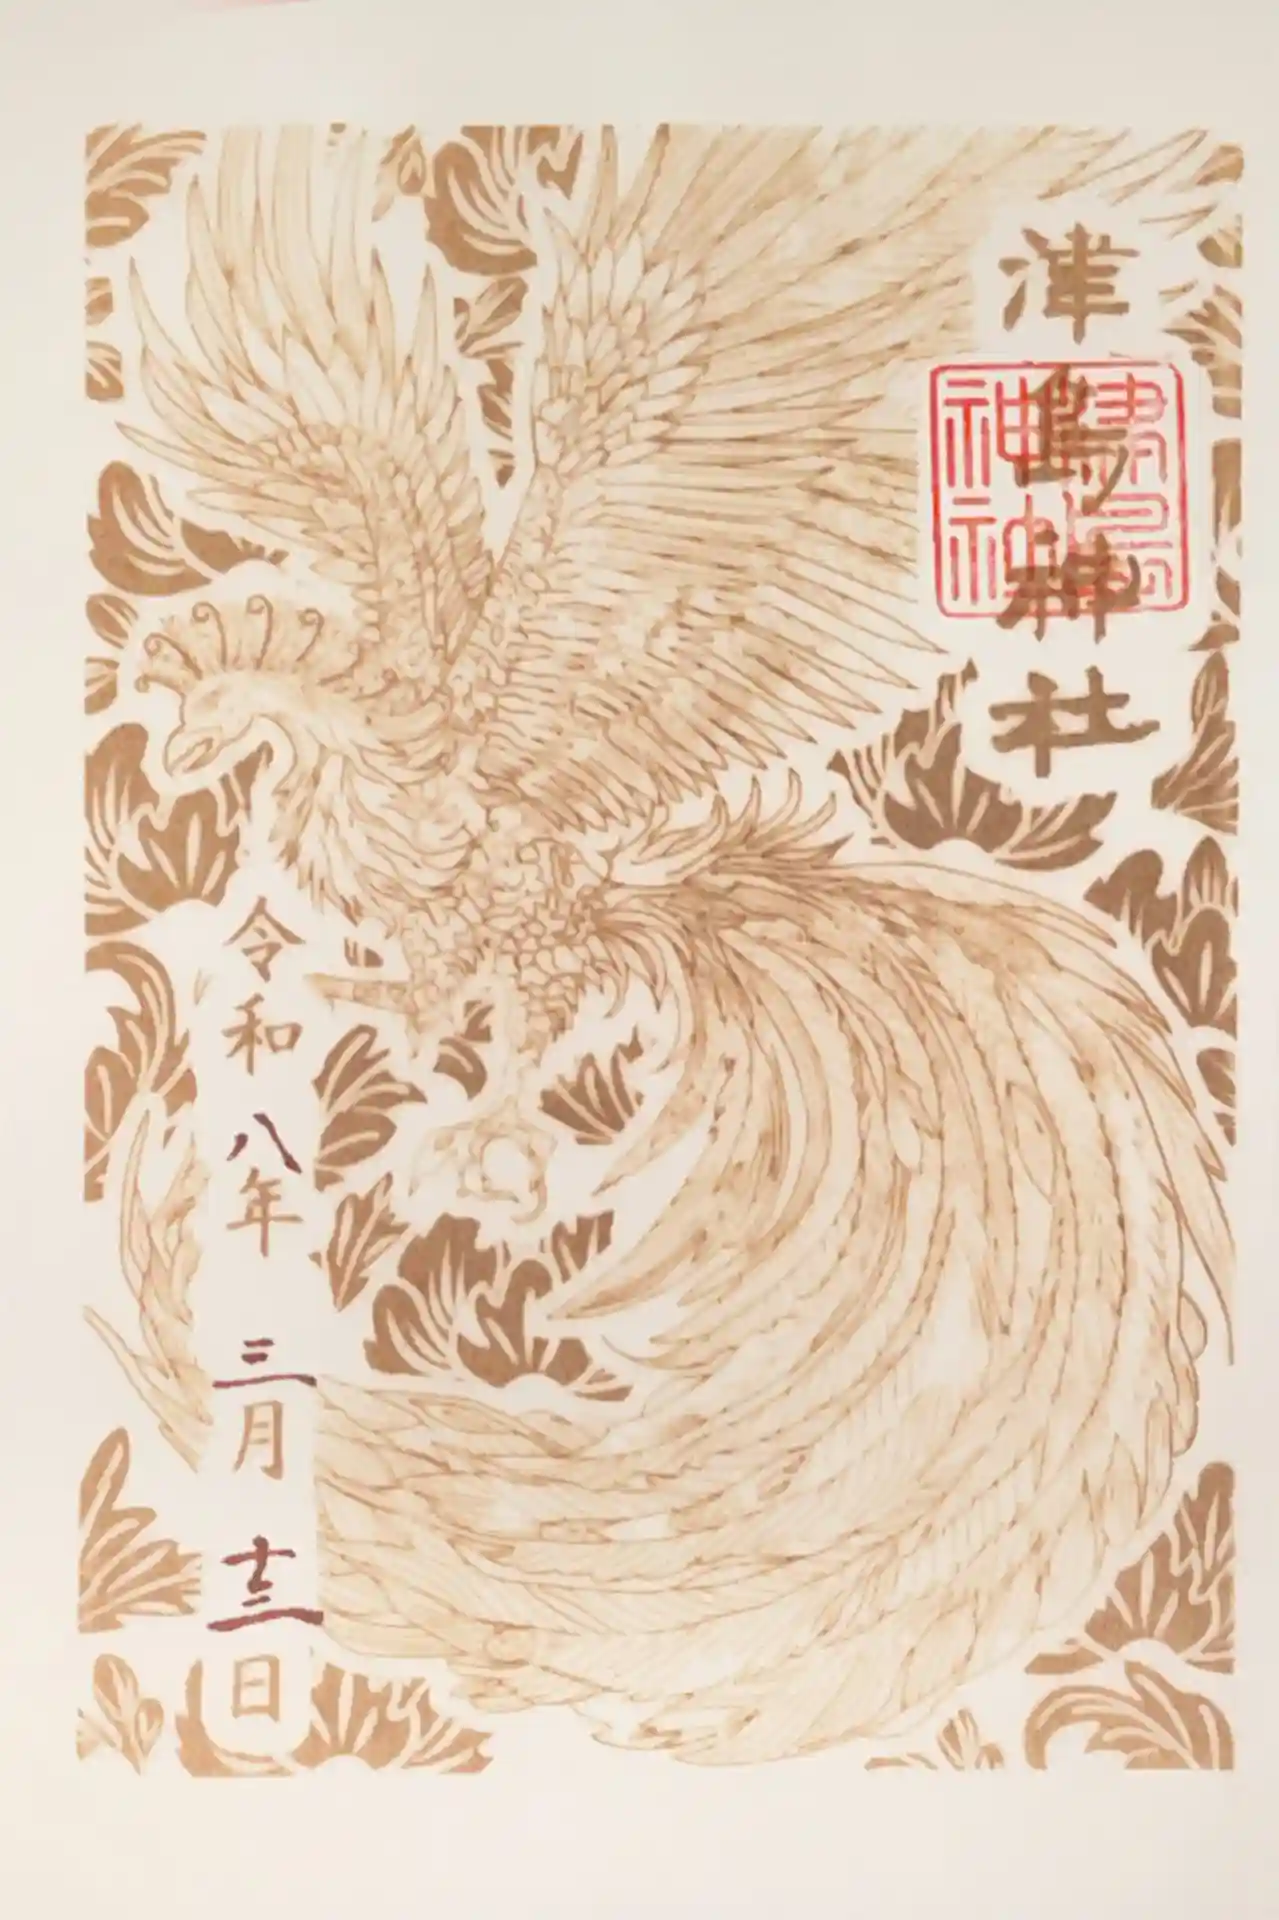 津島神社
津島神社
令和八年三月十三日